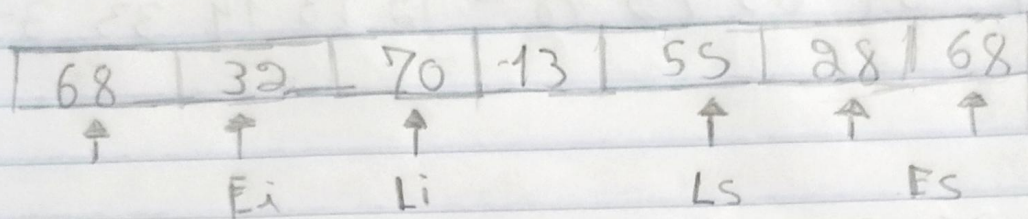 68 32 70 -13 55 28 68
Ei Li Ls Es